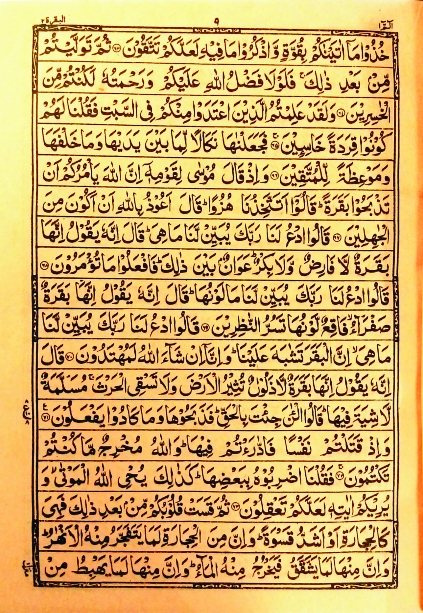 البقرة ٢ ٩ الٓمّٓ ١
خُذُوْا مَاۤ اٰتَيْنٰكُمْ بِقُوَّةٍ وَّاذْكُرُوْا مَا فِيْهِ لَعَلَّكُمْ تَتَّقُوْنَ ۝٦٣ ثُمَّ تَوَلَّيْتُمْ
مِّنْۢ بَعْدِ ذٰلِكَ ۚ فَلَوْلَا فَضْلُ اللّٰهِ عَلَيْكُمْ وَرَحْمَتُهٗ لَكُنْتُمْ مِّنَ
الْخٰسِرِيْنَ ۝٦٤ وَلَقَدْ عَلِمْتُمُ الَّذِيْنَ اعْتَدَوْا مِنْكُمْ فِى السَّبْتِ فَقُلْنَا لَهُمْ
كُوْنُوْا قِرَدَةً خَاسِـِٕيْنَ ۝٦٥ فَجَعَلْنٰهَا نَكَالًا لِّمَا بَيْنَ يَدَيْهَا وَمَا خَلْفَهَا
وَمَوْعِظَةً لِّلْمُتَّقِيْنَ ۝٦٦ وَاِذْ قَالَ مُوْسٰى لِقَوْمِهٖۤ اِنَّ اللّٰهَ يَاْمُرُكُمْ اَنْ
تَذْبَحُوْا بَقَرَةً ؕ قَالُوْۤا اَتَتَّخِذُنَا هُزُوًا ؕ قَالَ اَعُوْذُ بِاللّٰهِ اَنْ اَكُوْنَ مِنَ
الْجٰهِلِيْنَ ۝٦٧ قَالُوا ادْعُ لَنَا رَبَّكَ يُبَيِّنْ لَّنَا مَا هِىَ ؕ قَالَ اِنَّهٗ يَقُوْلُ اِنَّهَا
بَقَرَةٌ لَّا فَارِضٌ وَّلَا بِكْرٌ ؕ عَوَانٌۢ بَيْنَ ذٰلِكَ ؕ فَافْعَلُوْا مَا تُؤْمَرُوْنَ ۝٦٨
قَالُوا ادْعُ لَنَا رَبَّكَ يُبَيِّنْ لَّنَا مَا لَوْنُهَا ؕ قَالَ اِنَّهٗ يَقُوْلُ اِنَّهَا بَقَرَةٌ
صَفْرَآءُ ۙ فَاقِعٌ لَّوْنُهَا تَسُرُّ النّٰظِرِيْنَ ۝٦٩ قَالُوا ادْعُ لَنَا رَبَّكَ يُبَيِّنْ لَّنَا
مَا هِىَ ۙ اِنَّ الْبَقَرَ تَشٰبَهَ عَلَيْنَا ؕ وَاِنَّاۤ اِنْ شَآءَ اللّٰهُ لَمُهْتَدُوْنَ ۝٧٠ قَالَ
اِنَّهٗ يَقُوْلُ اِنَّهَا بَقَرَةٌ لَّا ذَلُوْلٌ تُثِيْرُ الْاَرْضَ وَلَا تَسْقِى الْحَرْثَ ۚ مُسَلَّمَةٌ
لَّا شِيَةَ فِيْهَا ؕ قَالُوا الْـٰٔنَ جِئْتَ بِالْحَقِّ ؕ فَذَبَحُوْهَا وَمَا كَادُوْا يَفْعَلُوْنَ ۝٧١
وَاِذْ قَتَلْتُمْ نَفْسًا فَادّٰرَءْتُمْ فِيْهَا ؕ وَاللّٰهُ مُخْرِجٌ مَّا كُنْتُمْ
تَكْتُمُوْنَ ۝٧٢ فَقُلْنَا اضْرِبُوْهُ بِبَعْضِهَا ؕ كَذٰلِكَ يُحْىِ اللّٰهُ الْمَوْتٰى ۙ وَ
يُرِيْكُمْ اٰيٰتِهٖ لَعَلَّكُمْ تَعْقِلُوْنَ ۝٧٣ ثُمَّ قَسَتْ قُلُوْبُكُمْ مِّنْۢ بَعْدِ ذٰلِكَ فَهِىَ
كَالْحِجَارَةِ اَوْ اَشَدُّ قَسْوَةً ؕ وَاِنَّ مِنَ الْحِجَارَةِ لَمَا يَتَفَجَّرُ مِنْهُ الْاَنْهٰرُ ؕ
وَاِنَّ مِنْهَا لَمَا يَشَّقَّقُ فَيَخْرُجُ مِنْهُ الْمَآءُ ؕ وَاِنَّ مِنْهَا لَمَا يَهْبِطُ مِنْ